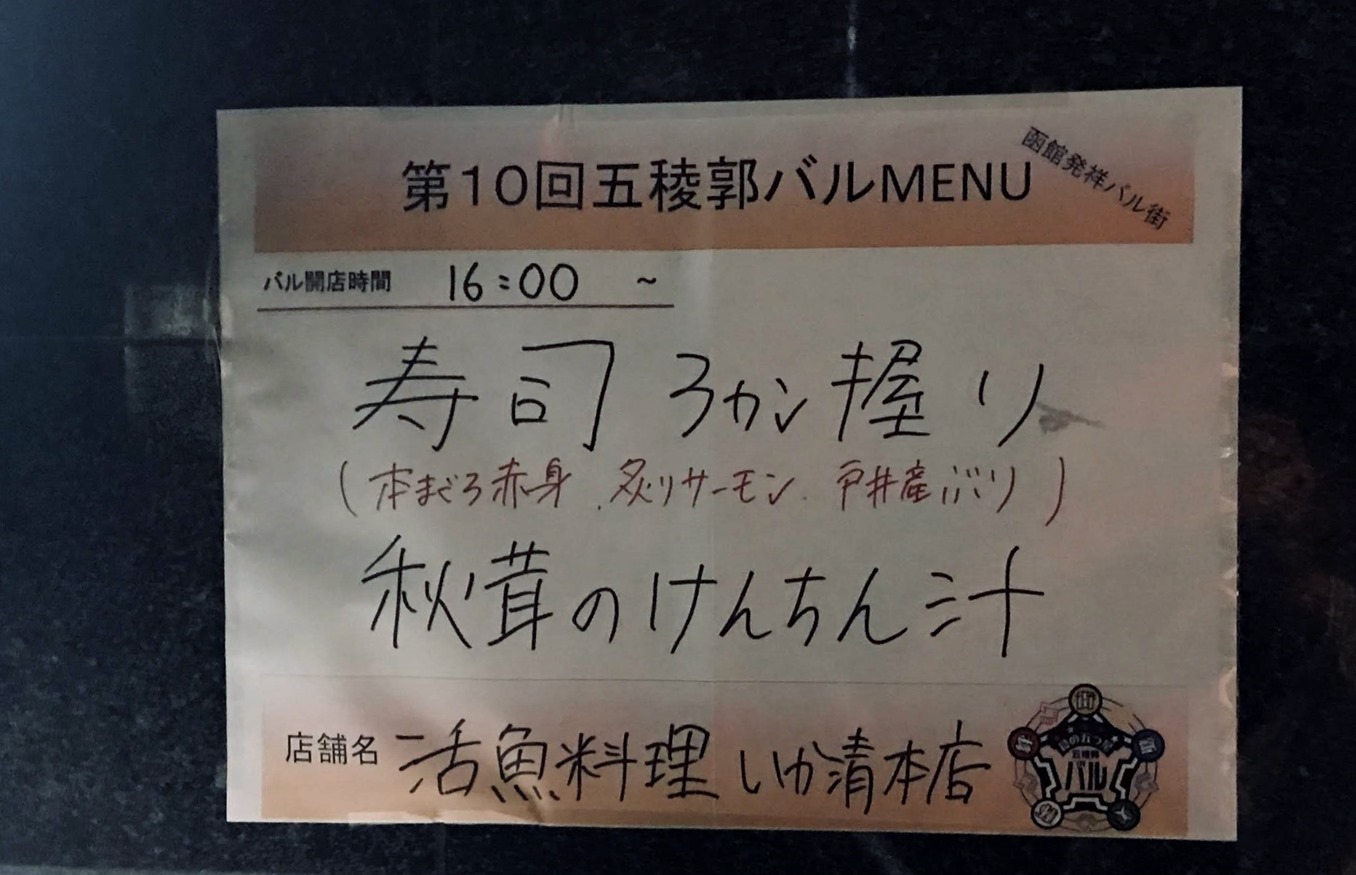 第10回五稜郭バルMENU
函館発祥バル街
バル開店時間 16:00 ~
寿司 3カン握り
(本まぐろ赤身、炙りサーモン、戸井産ぶり)
秋茸のけんちん汁
店舗名 活魚料理 いか清本店
バル